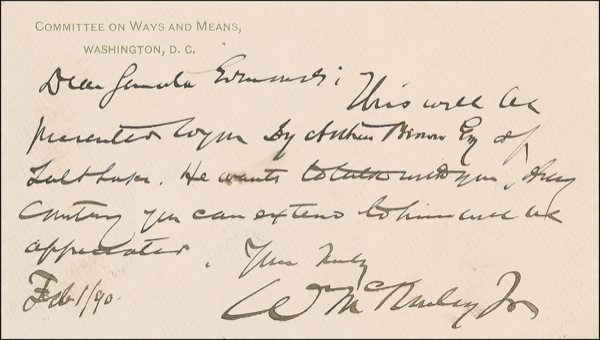 COMMITTEE ON WAYS AND MEANS,
WASHINGTON, D. C.
Dear Senator Edmunds; This will be
presented to you by Arthur Brown Esq of
Salt Lake. He wants to talk with you, Any
Courtesy you can extend to him will be
appreciated. Yours truly
Feb 1/90. Wm McKinley Jr